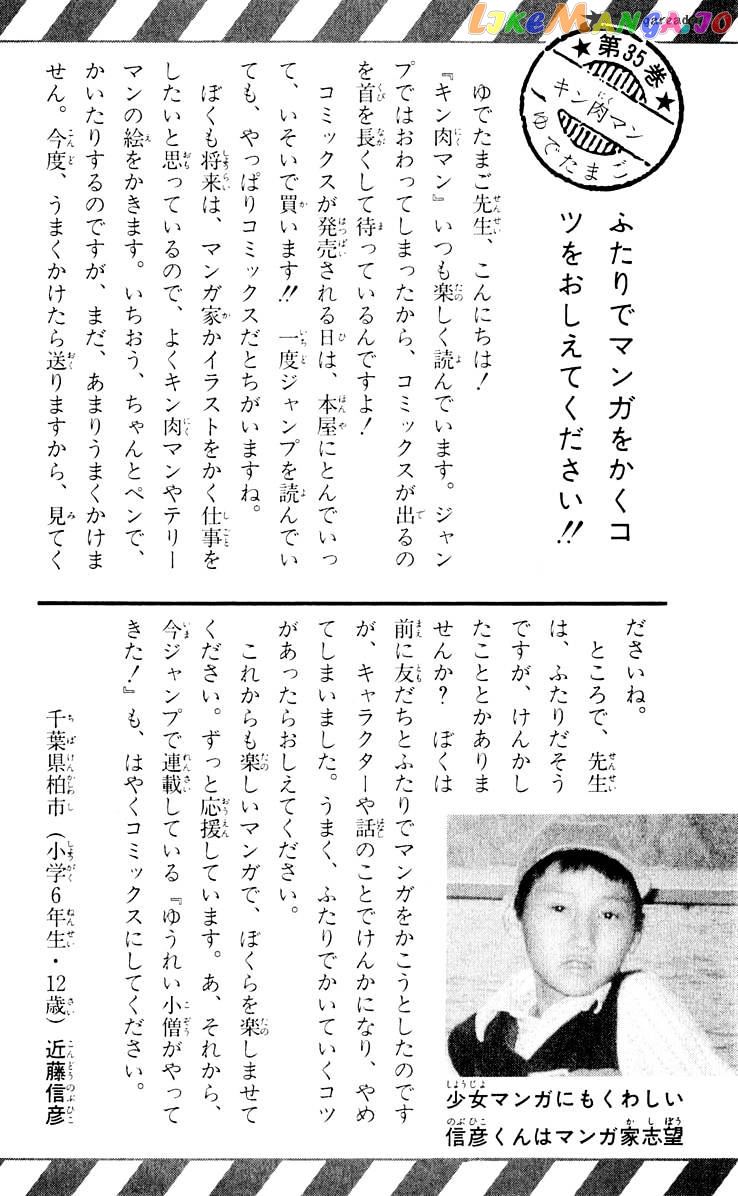 LIKEMANGA.IO
第35巻
キン肉マン
ゆでたまご
ふたりでマンガをかくコ
ツをおしえてください!!
ゆでたまご先生、こんにちは!
『キン肉マン』いつも楽しく読んでいます。ジャン
プではおわってしまったから、コミックスが出るの
を首を長くして待っているんですよ!
コミックスが発売される日は、本屋にとんでいっ
て、いそいで買います!!　一度ジャンプを読んでい
ても、やっぱりコミックスだとちがいますね。
ぼくも将来は、マンガ家かイラストをかく仕事を
したいと思っているので、よくキン肉マンやテリー
マンの絵をかきます。いちおう、ちゃんとペンで、
かいたりするのですが、まだ、あまりうまくかけま
せん。今度、うまくかけたら送りますから、見てく
ださいね。
ところで、先生
は、ふたりだそう
ですが、けんかし
たこととかありま
せんか?　ぼくは
前に友だちとふたりでマンガをかこうとしたのです
が、キャラクターや話のことでけんかになり、やめ
てしまいました。うまく、ふたりでかいていくコツ
があったらおしえてください。
これからも楽しいマンガで、ぼくらを楽しませて
ください。ずっと応援しています。あ、それから、
今ジャンプで連載している『ゆうれい小僧がやって
きた!』も、はやくコミックスにしてください。
千葉県柏市（小学6年生・12歳）近藤信彦
少女マンガにもくわしい
信彦くんはマンガ家志望